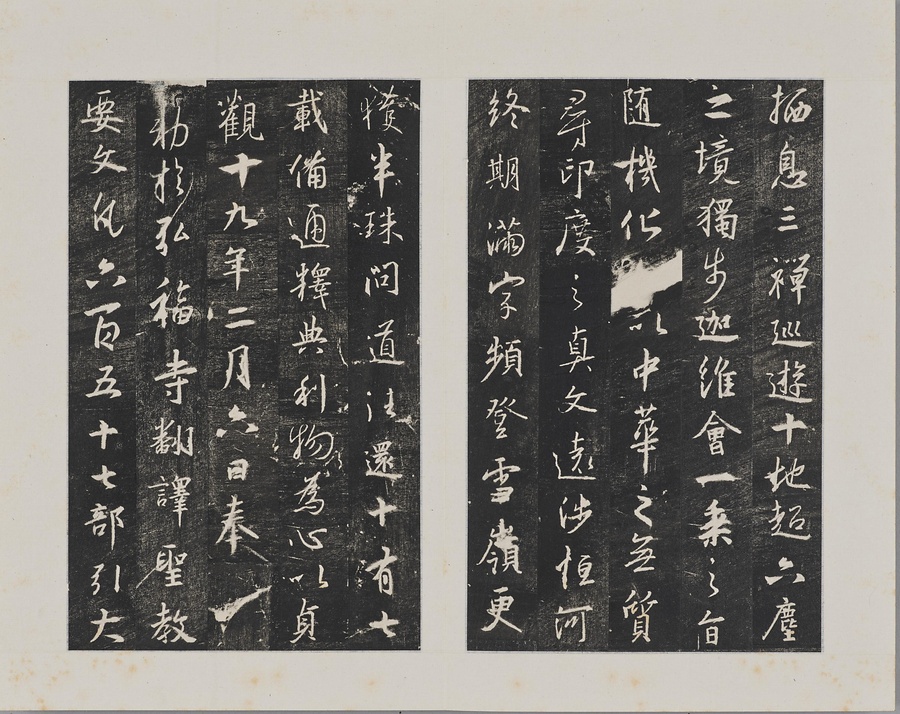 栖息三禪巡遊十地超六塵
之境獨步迦維會一乘之旨
随機化以中華之無質
尋印度之真文遠涉恒河
終期滿字頻登雪嶺更
獲半珠問道法還十有七
載備通釋典利物為心以貞
觀十九年二月六日奉
勅於弘福寺翻譯聖教
要文凡六百五十七部引大